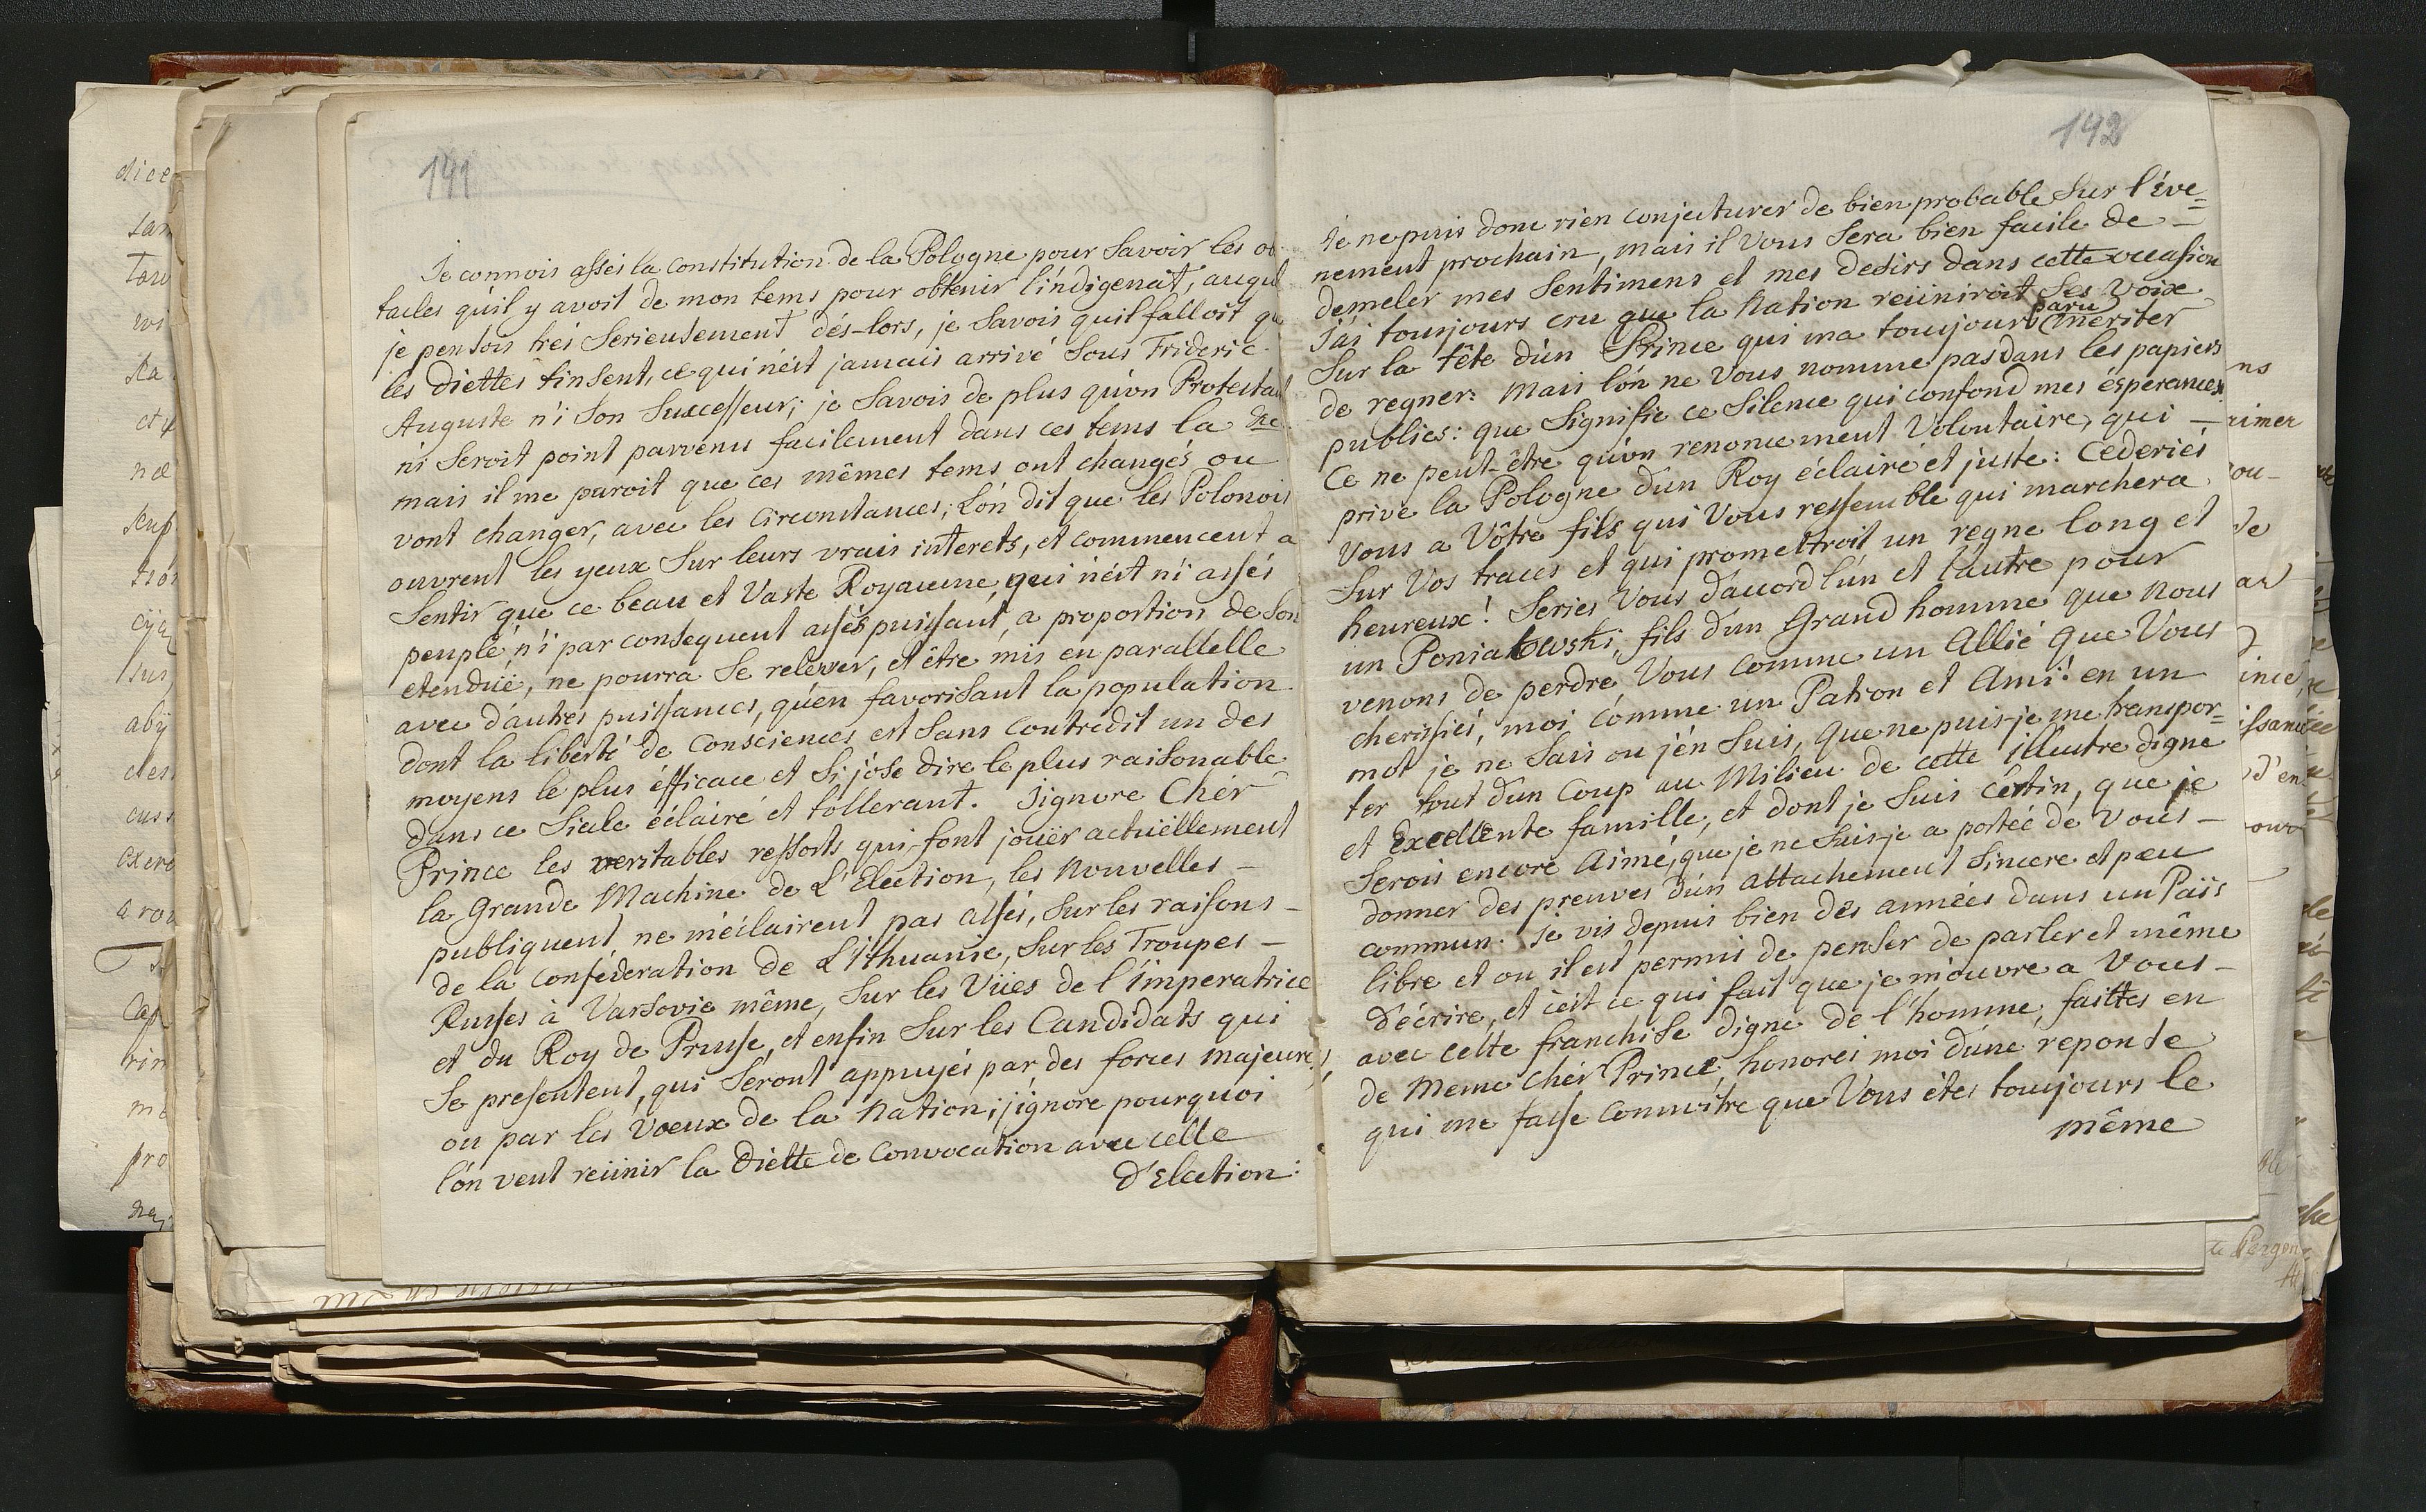 141
Je connois assés la constitution de la Pologne pour Savoir les
tacles qu'il y avoit de mon tems pour obtenir l'indigenat, auquel
je pensois trés Serieusement dés-lors, je Savois quil falloit
les diettes tinsent, ce qui n'est jamais arrivé Sous Frideric
Auguste n'i Son Successeur; je Savois de plus qu'on Protestant
ni Seroit point parvenu facilement dans ces tems la &c
mais il me paroit que ces mêmes tems ont changés ou
vont changer, avec les Circonstances; L'on dit que les Polonois
ouvrent les yeux Sur leurs vrais interets, et commencent a
Sentir que ce beau et Vaste Royaume, qui n'est n'i assés
peuplé n'i par consequent assés puissant, a proportion de Son
etenduë, ne pourra Se relever, et être mis en parallelle
avec d'autres puissances, qu'en favorisant la population
dont la liberté de Consciences est Sans Contredit un des
moyens le plus éfficace et Si j'ose dire le plus raisonable
dans ce Siecle éclairé et tollerant. Jignore Chér
Prince les veritables ressorts qui font jouër actuëllement
la Grande Machine de L'Election, les Nouvelles –
publiquent ne m'éclairent pas assés, Sur les raisons –
de la conféderation de Lithuanie, Sur les Troupes –
Russes à Varsovie même, Sur les Vües de l'imperatrice
et du Roy de Prusse, et enfin Sur les Candidats qui
Se presentent, qui Seront appuyés par des forces majeures,
ou par les Voeux de la Nation; j'ignore pourquoi
l'on veut reünir la Diette de Convocation avec celle
d'Election:
142
Je ne puis donc rien conjecturer de bien probable Sur l'éve=
nement prochain, mais il Vous Sera bien facile de –
demeler mes Sentimens et mes desirs dans cette occasion
J'ai toujours cru que la Nation reüniroit Ses voix
paru
Sur la tête d'un Prince qui ma toujours meriter
de regner: Mais l'on ne Vous nomme pas dans les papiers
publics: que Signifie ce Silence qui confond mes ésperances.
Ce ne peut-être qu'un renoncement Volontaire, qui –
prive la Pologne d'un Roy éclairé et juste: Cederiés
Vous a Vôtre fils qui Vous ressemble qui marchera
Sur Vos traces et qui promettroit un regne long et
heureux! Series Vous d'accord l'un et l'autre pour
un Poniatowski, fils d'un Grand homme que Nous
venons de perdre, Vous comme un Allié que Vous
cherissiés, moi comme un Patron et Ami! en un
mot je ne Sais ou j'en Suis, Que ne puis-je me transpor=
ter tout d'un Coup au Milieu de cette illustre digne
et Excellente famille, et dont je Suis Cértin, que je
Serois encore Aimé, que je ne Suis-je a portée de Vous –
donner des preuves d'un attachement Sincere et peu
commun. Je vis depuis bien des années dans un Païs
libre et ou il est permis de penser de parler et même
d'écrire, et c'est ce qui fait que je m'ouvre a Vous –
avec cette franchise digne de l'homme, faittes en
de meme Chér Prince, honorés moi d'une reponse
qui me fasse Connoître que Vous êtes toujours le
même